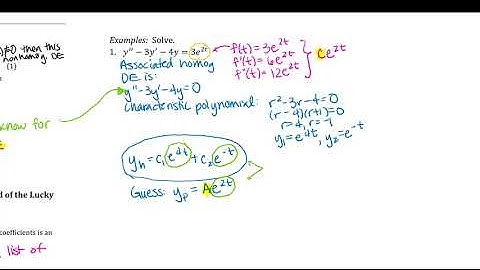 Examples: Solve.
1. y" − 3y' − 4y = 3e^{2t}
f(t) = 3e^{2t}
f'(t) = 6e^{2t}
f"(t) = 12e^{2t}
Ce^{2t}
≠0 then this
nonhomog. DE
(1)
Associated homog
DE is:
y"-3y'-4y=0
characteristic polynomial:
r²-3r-4=0
(r-4)(r+1)=0
r=4, r=-1
y₁=e^{4t}, y₂=e^{-t}
know for
y_h = c₁e^{4t} + c₂e^{-t}
Guess: y_p = Ae^{2t}
d of the Lucky
coefficients is an
list of